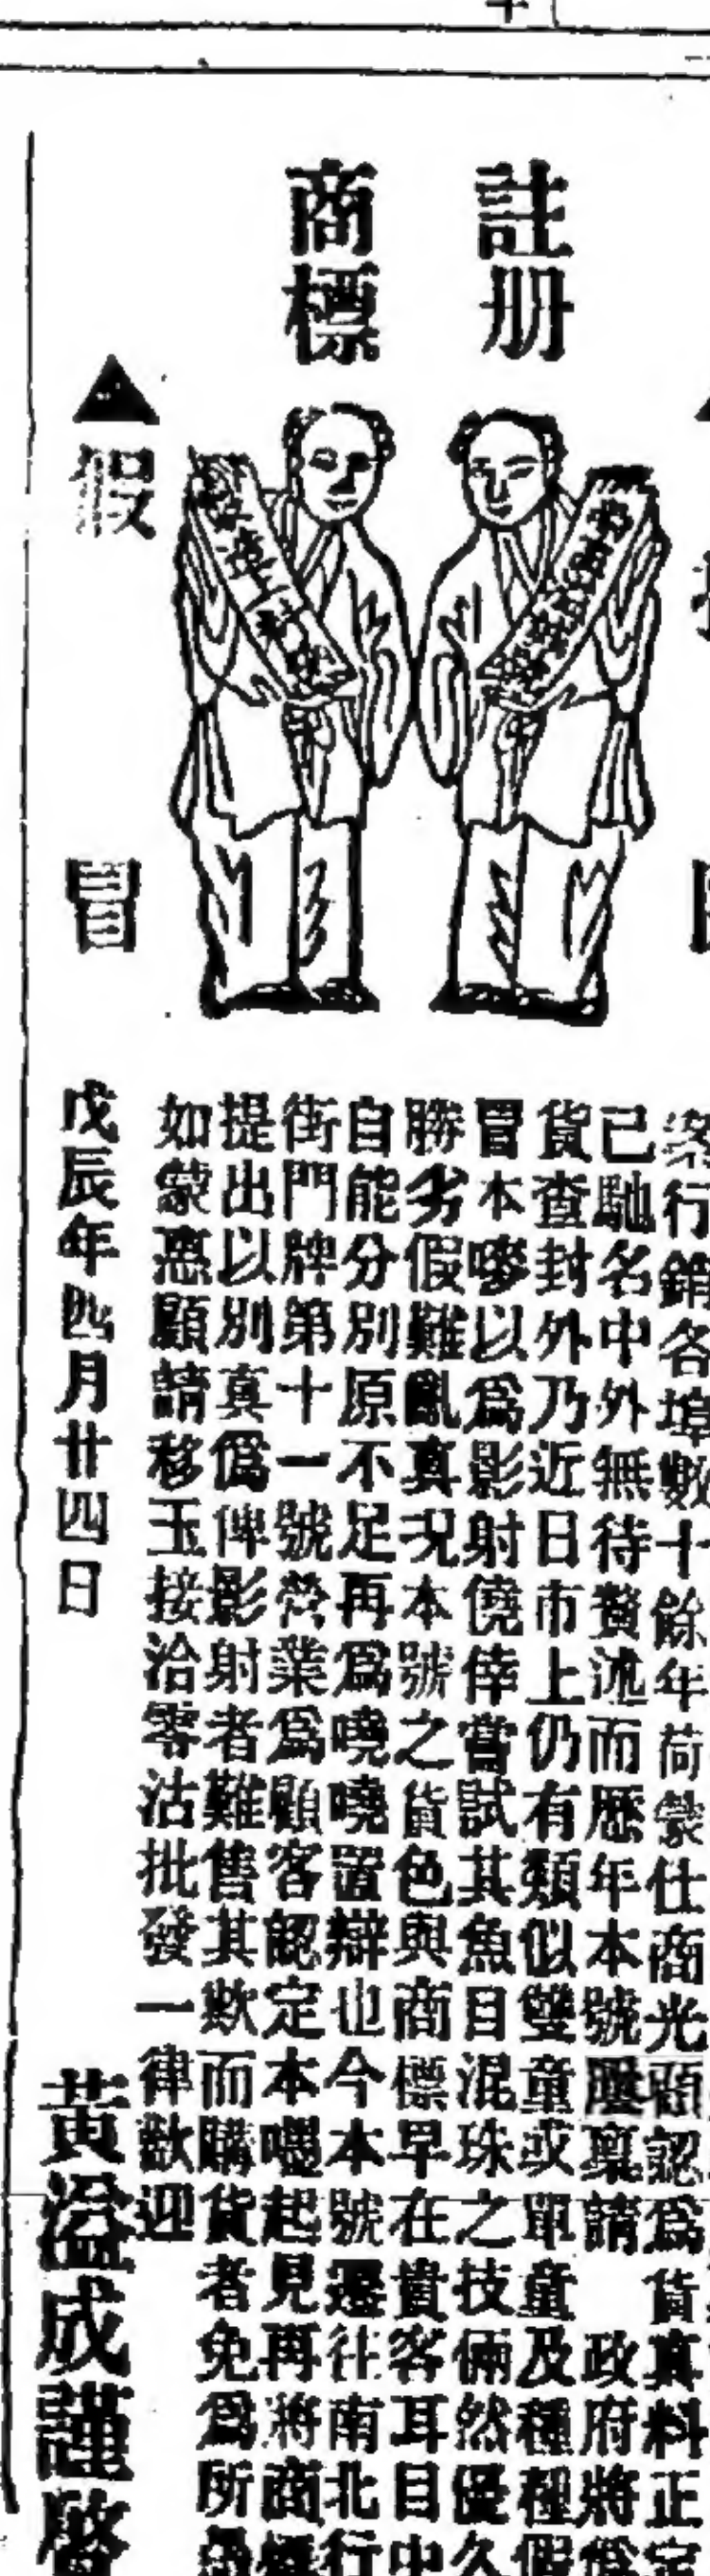 註册
商標
假冒
衆行銷各埠數十餘年荷蒙仕商光顧認爲貨真料正
已馳名中外無待贅述而歷年本號屢稟請 政府將
貨查封外乃近日市上仍有類似雙童或單童及種種假
冒本嘜以爲影射僥倖嘗試其魚目混珠之技倆然優
勝劣假難亂真况本號之貨色與商標早在貴客耳目中
自能分別原不足再爲嘵嘵置辯也今本號遷往南北行
街門牌第十一號營業爲顧客認定本嘜起見再將商標
提出以別真僞俾影射者難售其欺而購貨者免爲所
如蒙惠顧請移玉接洽零沽批發一律歡迎
戊辰年四月廿四日
黃溢成謹啓